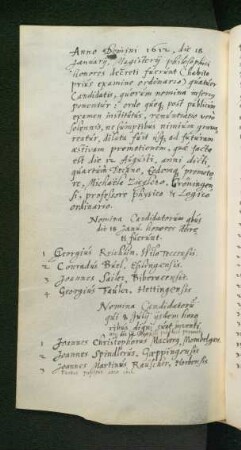 Anno Domini 1612, die 18
Januarij, Magisterij philosophici
honores decreti fuerunt (habito
prius examine ordinario) quatuor
Candidatis, quorum nomina inferius
ponentur: ordo quoq, post publicum
examen institutus, renuntiatio vero
solennis, ne sumptibus nimium grava
rentur, dilata fuit usq, ad futuram
æstivam promotionem, quæ facta
est die 12 Augusti, anni dicti,
Decano, Eodemq, promoto
re, Michaële Zieglero, Gröningen
si, professore Physico & Logico
ordinario.
Nomina Candidatorum quibus
die 18 Januarij honores decre
ti fuerunt.
1 Georgius
2 Conradus Büel, Eslingensis.
3 Joannes Sailer, Bibera
4 Georgius Hettingensis
Nomina Candidatorum
qui 8 Julij ijsdem hono
ribus digni sunt inventi
1 Joannes Christophorus Mombelgar.
2 Joannes Spindlerus, Gœppingensis
3 Joannes Martinus Rauscher, Horbensis